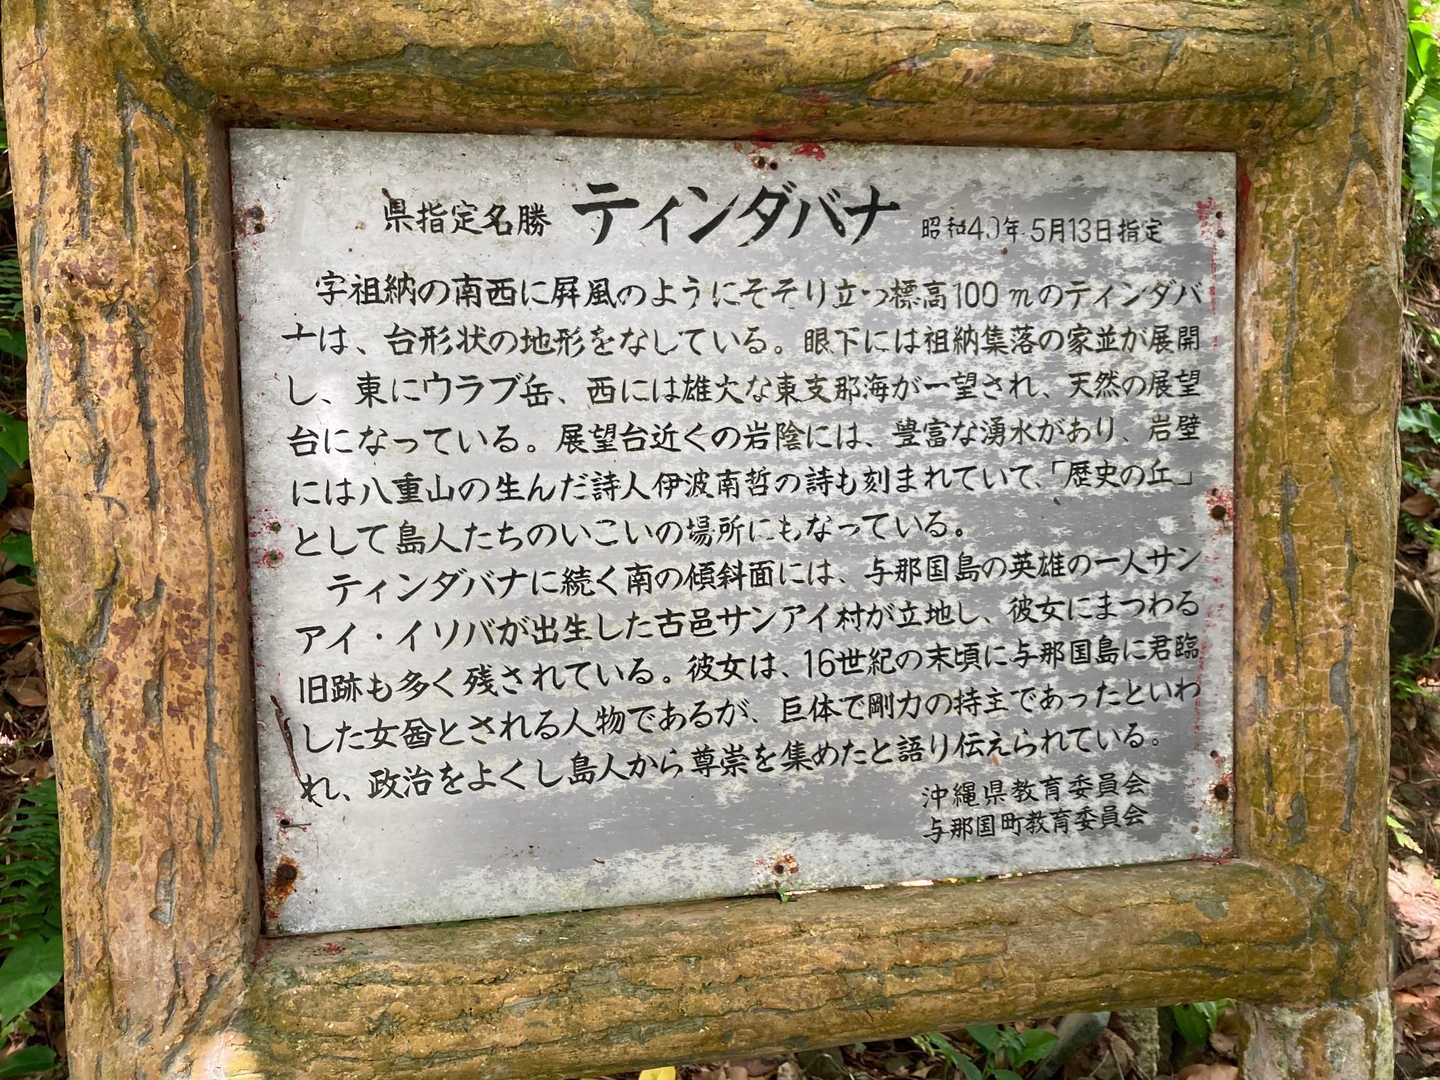 県指定名勝 ティンダバナ 昭和4 年5月13日指定
字祖納の南西に屏風のようにそそり立つ標高100mのティンダバ
ナは、台形状の地形をなしている。眼下には祖納集落の家並が展開
し、東にウラブ岳、西には雄大な東支那海が一望され、天然の展望
台になっている。展望台近くの岩陰には、豊富な湧水があり、岩壁
には八重山の生んだ詩人伊波南哲の詩も刻まれていて、「歴史の丘」
として島人たちのいこいの場所にもなっている。
ティンダバナに続く南の傾斜面には、与那国島の英雄の一人サン
アイ・イソバが出生した古邑サンアイ村が立地し、彼女にまつわる
旧跡も多く残されている。彼女は、16世紀の末頃に与那国島に君臨
した女酋とされる人物であるが、巨体で剛力の持主であったといわ
れ、政治をよくし島人から尊崇を集めたと語り伝えられている。
沖縄県教育委員会
与那国町教育委員会